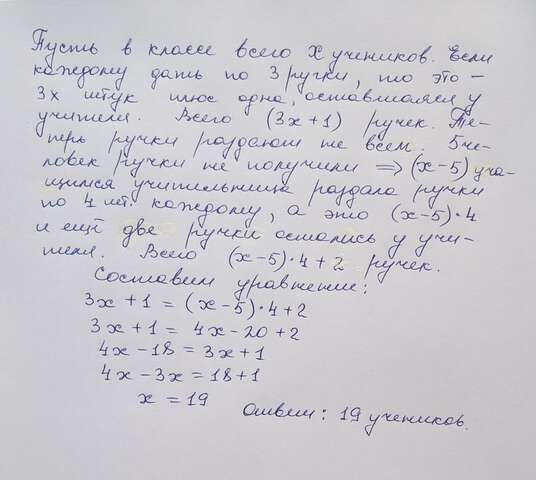 Пусть в классе всего x учеников. Если
каждому дать по 3 ручки, то это –
3x штук плюс одна, оставшаяся у
учителя. Всего (3x+1) ручек. Те-
перь ручки раздают не всем. 5 че-
ловек ручки не получили ⇒ (x-5) уча-
щимся учительница раздала ручки
по 4 шт каждому, а это (x-5)·4
и ещё две ручки остались у учи-
теля. Всего (x-5)·4+2 ручек.
Составим уравнение:
3x+1 = (x-5)·4+2
3x+1 = 4x-20+2
4x-18 = 3x+1
4x-3x = 18+1
x = 19 Ответ: 19 учеников.